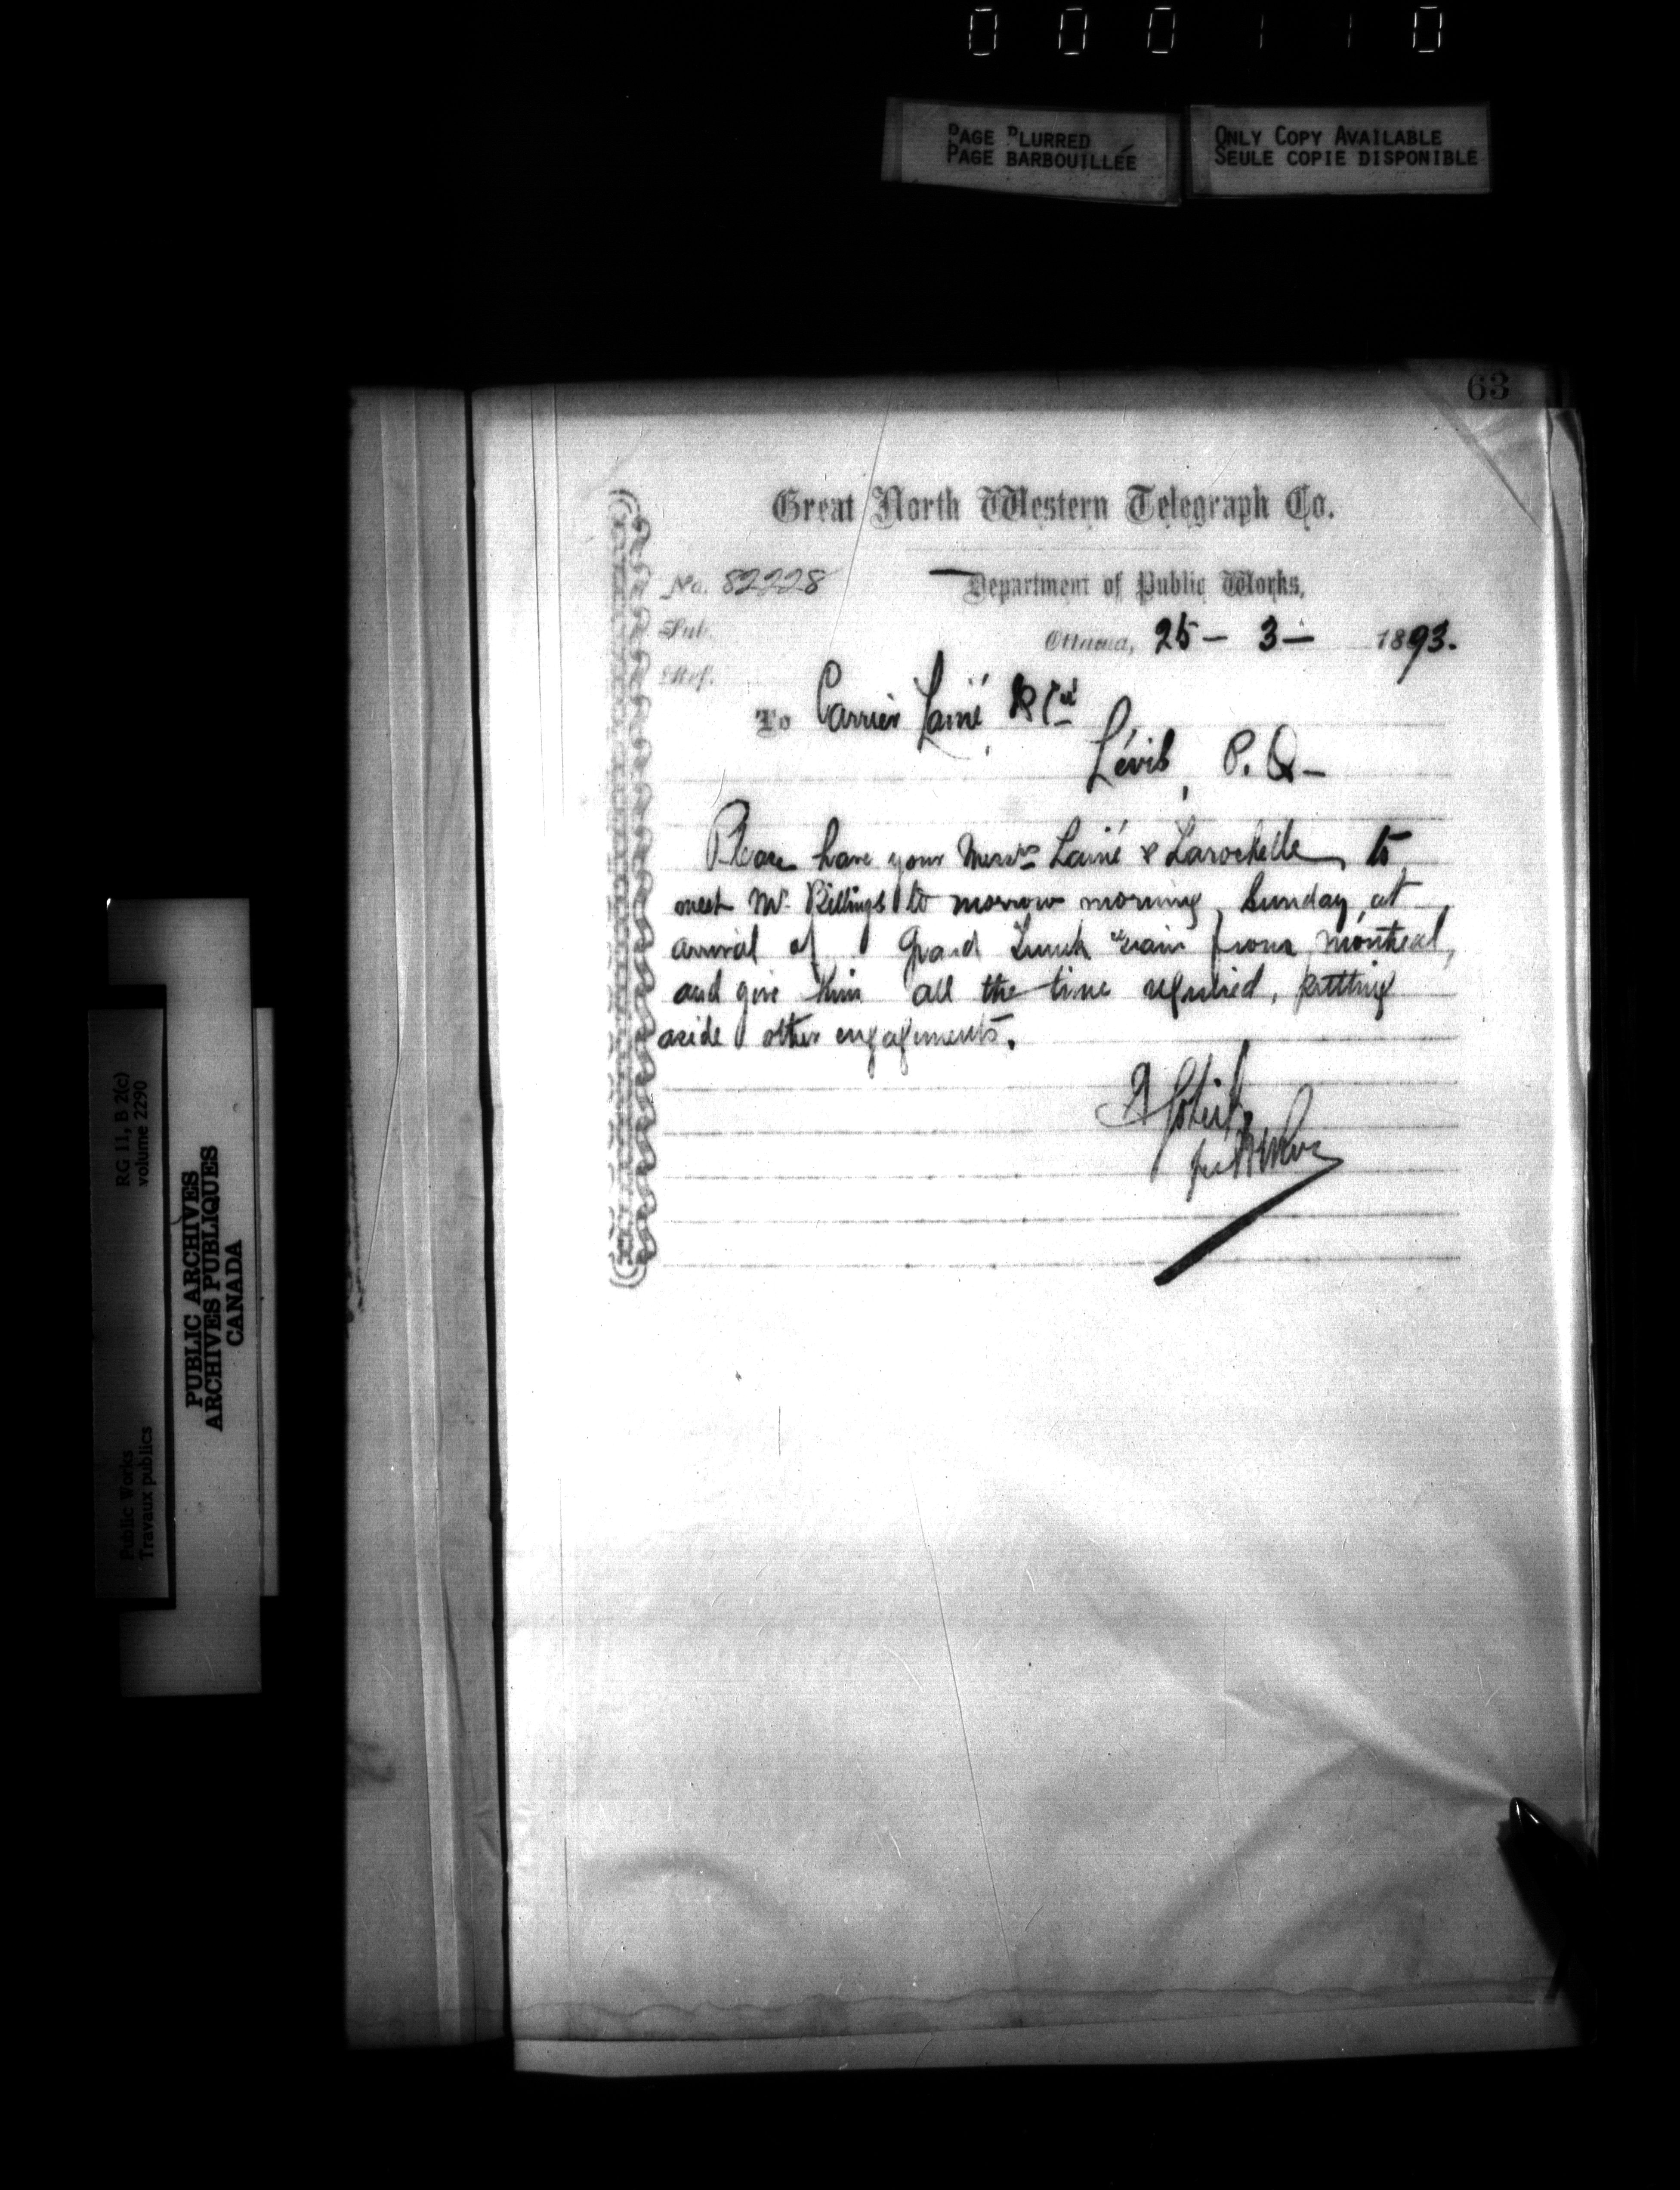 0 0 0 1 1 0
PAGE BLURRED
PAGE BARBOUILLÉE
ONLY COPY AVAILABLE
SEULE COPIE DISPONIBLE
63
Great North Western Telegraph Co.
No. 82228
Department of Public Works,
Sub.
Ottawa, 25 - 3 - 1893.
Ref.
To Carrier Lainé & Cie
Lévis, P. Q -
Please have your Messrs Lainé & Larochelle, to
meet Mr. Billings to morrow morning, Sunday, at
arrival of Grand Trunk train from Montreal,
and give him all the time required, putting
aside other engagements.
A Gobeil
RG 11, B 2(c)
volume 2290
Public Works
Travaux publics
PUBLIC ARCHIVES
ARCHIVES PUBLIQUES
CANADA